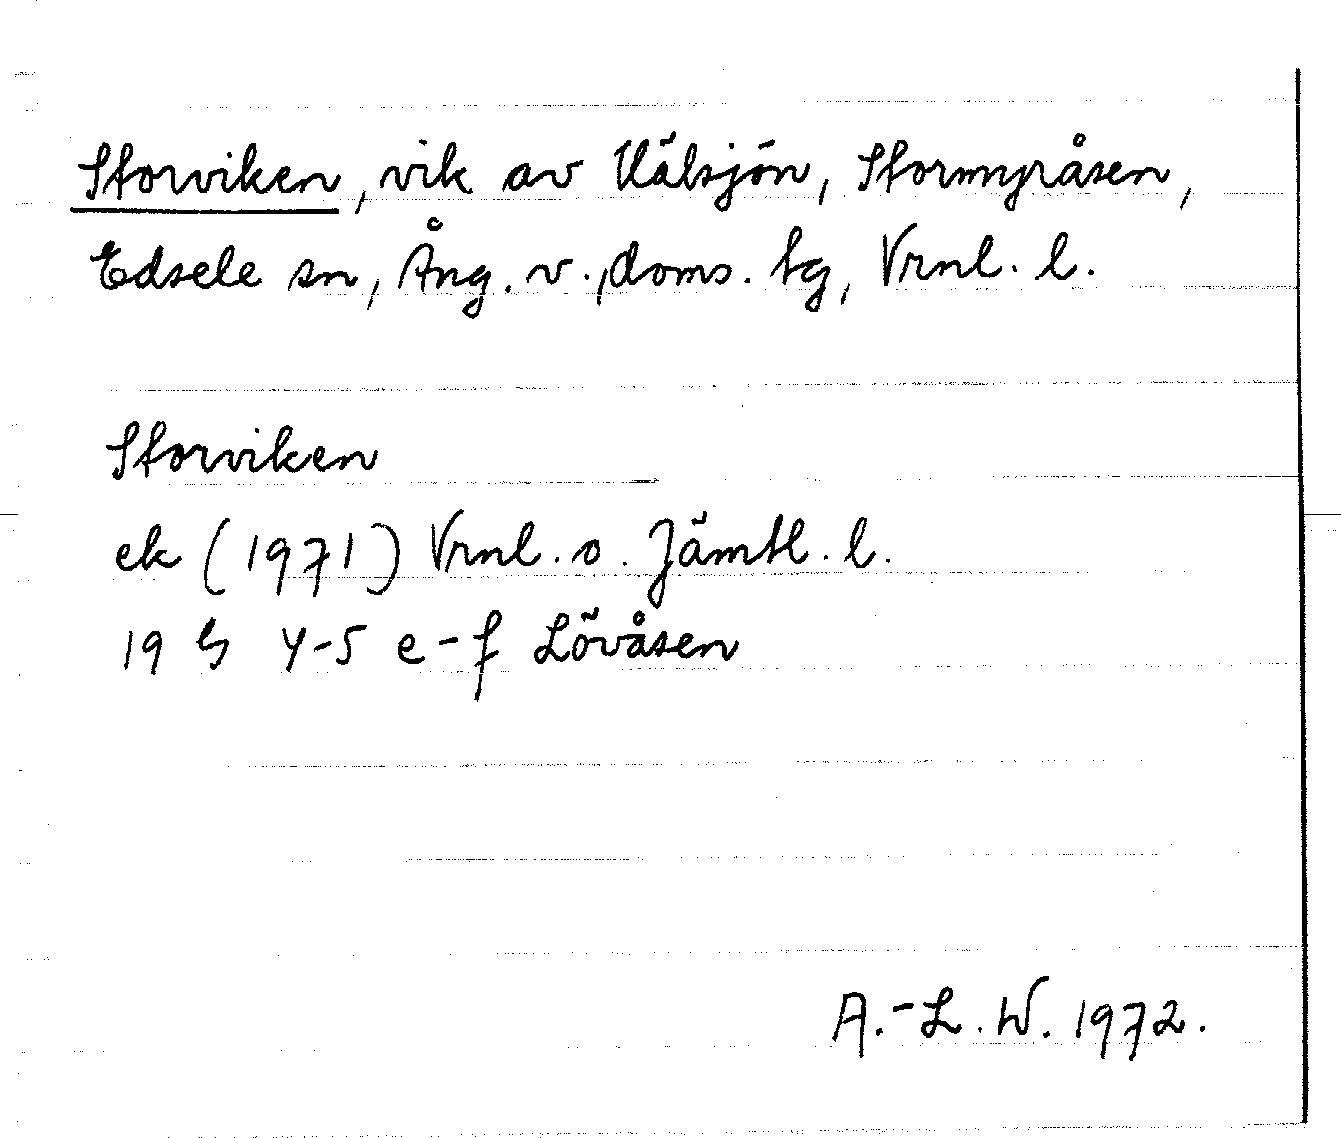 Storviken, vik av Uälsjön, Stormyråsen,
Edsele sn, Ång. v., doms. tg, Vrnl. l.
Storviken
ek (1971) Vrnl. o. Jämtl. l.
19 G 4-5 e-f Lövåsen
A.-L. W. 1972.